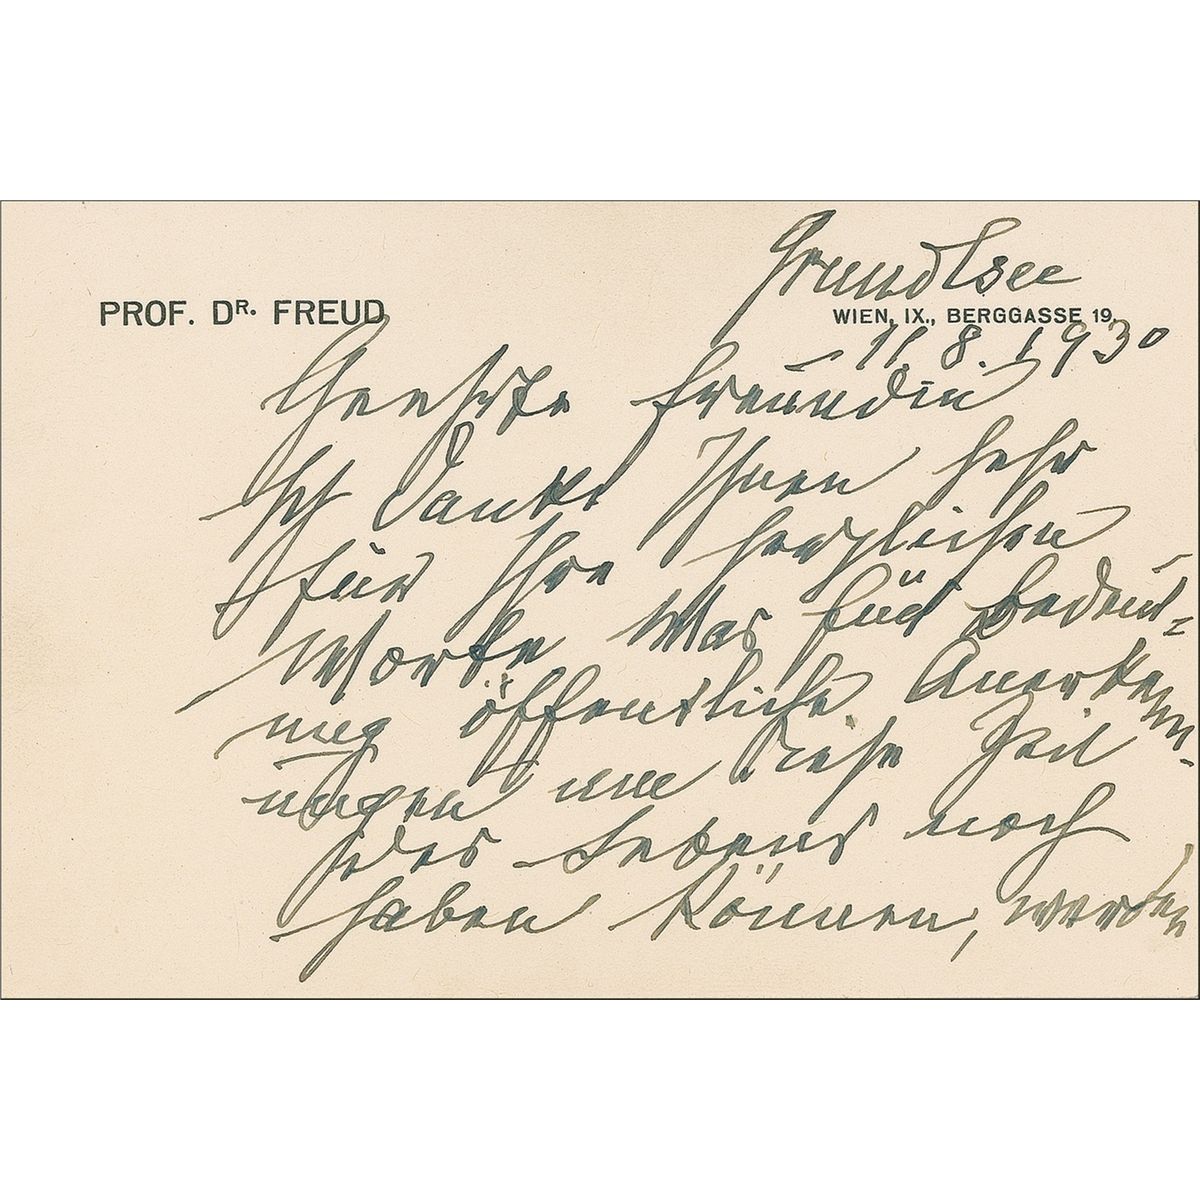 Grundlsee
PROF. DR. FREUD
WIEN, IX., BERGGASSE 19.
11.8.1930
Geehrte Freundin
Ich danke Ihnen sehr
für Ihre herzlichen
Worte. Was für Bedeut-
ung öffentliche Anerkenn-
ungen um diese Zeit
des Lebens noch
haben können, werden